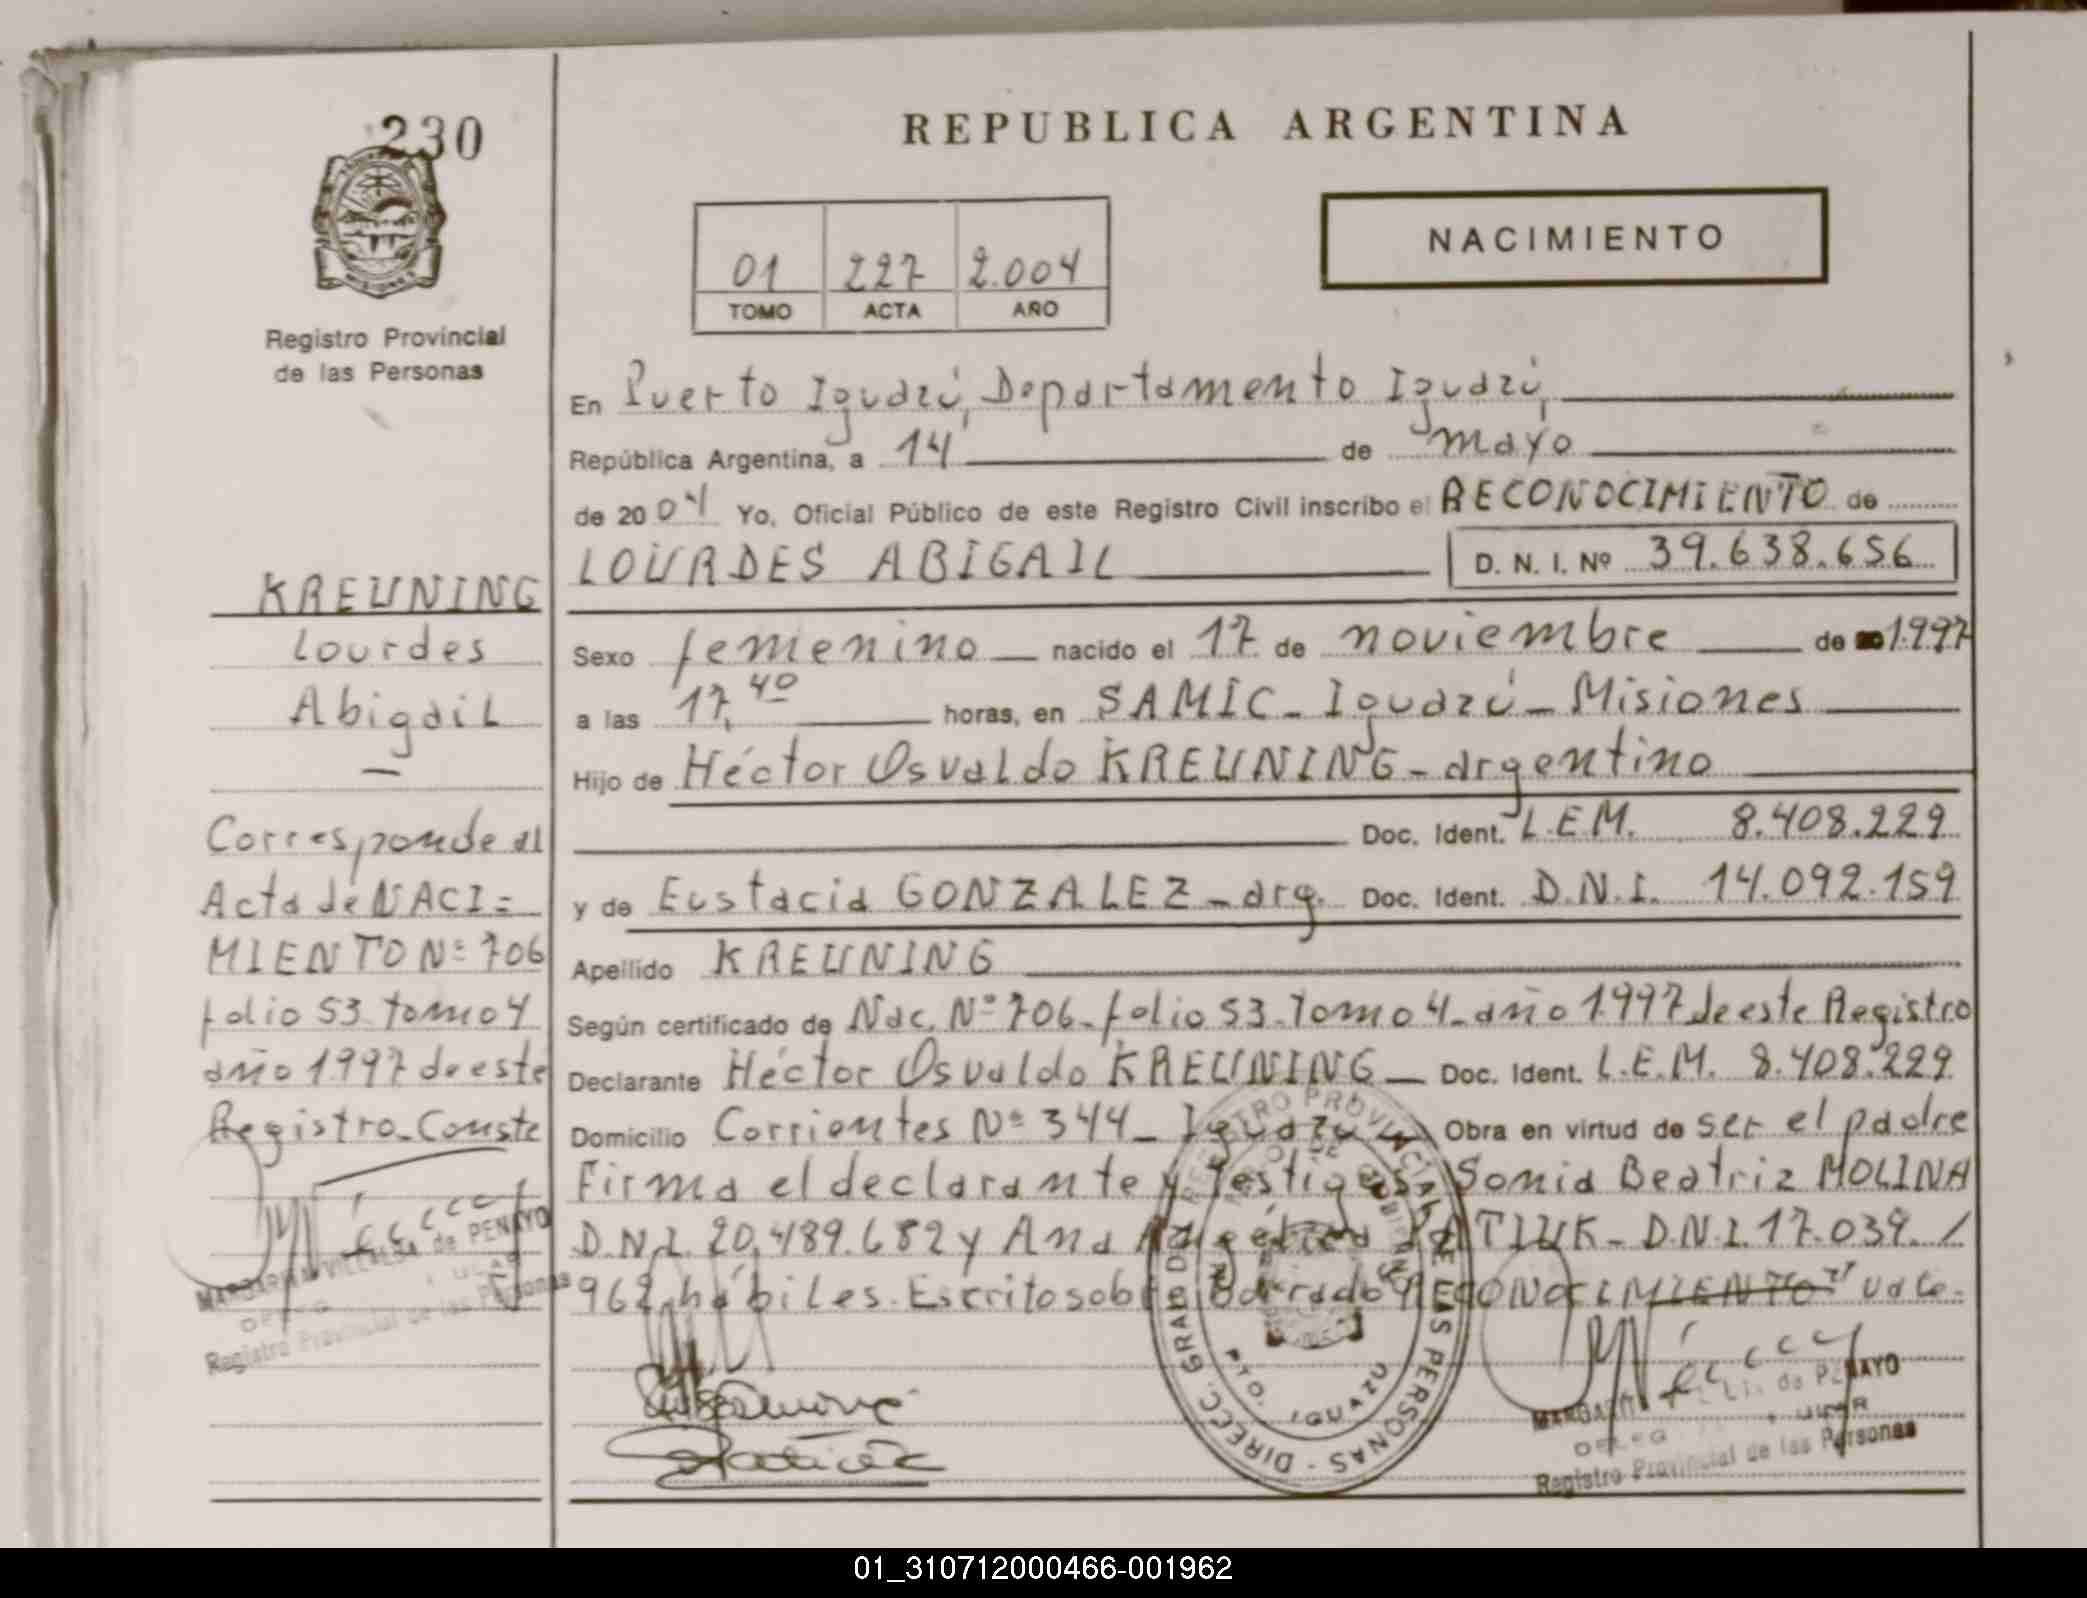 230
REPUBLICA ARGENTINA
NACIMIENTO
01 227 2.004
TOMO ACTA AÑO
Registro Provincial
de las Personas
En Puerto Iguazú, Departamento Iguazú,
República Argentina, a 14 de mayo
de 2004 Yo, Oficial Público de este Registro Civil inscribo el RECONOCIMIENTO de
LOURDES ABIGAIL D. N. I. Nº 39.638.656
KREUNING
Lourdes
Abigail
Sexo femenino nacido el 17 de noviembre de 1997
a las 17,40 horas, en SAMIC - Iguazú - Misiones
Hijo de Héctor Osvaldo KREUNING - argentino
Doc. Ident. L.E.M. 8.408.229
y de Eustacia GONZALEZ - arg. Doc. Ident. D.N.I. 14.092.159
Apellido KREUNING
Según certificado de Nac. Nº 706 - folio 53 - Tomo 4 - año 1997 de este Registro
Declarante Héctor Osvaldo KREUNING - Doc. Ident. L.E.M. 8.408.229
Domicilio Corrientes Nº 344 - Iguazú Obra en virtud de ser el padre
Firma el declarante y Testigos, Sonia Beatriz MOLINA
D.N.I. 20.489.682 y Ana Angélica D.N.I. 17.039. /
962 hábiles. Escrito sobre borrado "RECONOCIMIENTO" vale.
Corresponde al
Acta de NACI=
MIENTO Nº 706
folio 53 tomo 4
año 1997 de este
Registro. Conste
REGISTRO PROVINCIAL DE LAS PERSONAS - DIRECC. GRAL DEL
PTO. IGUAZU
de PENAYO
Registro Provincial de las Personas
de PENAYO
Registro Provincial de las Personas
01_310712000466-001962